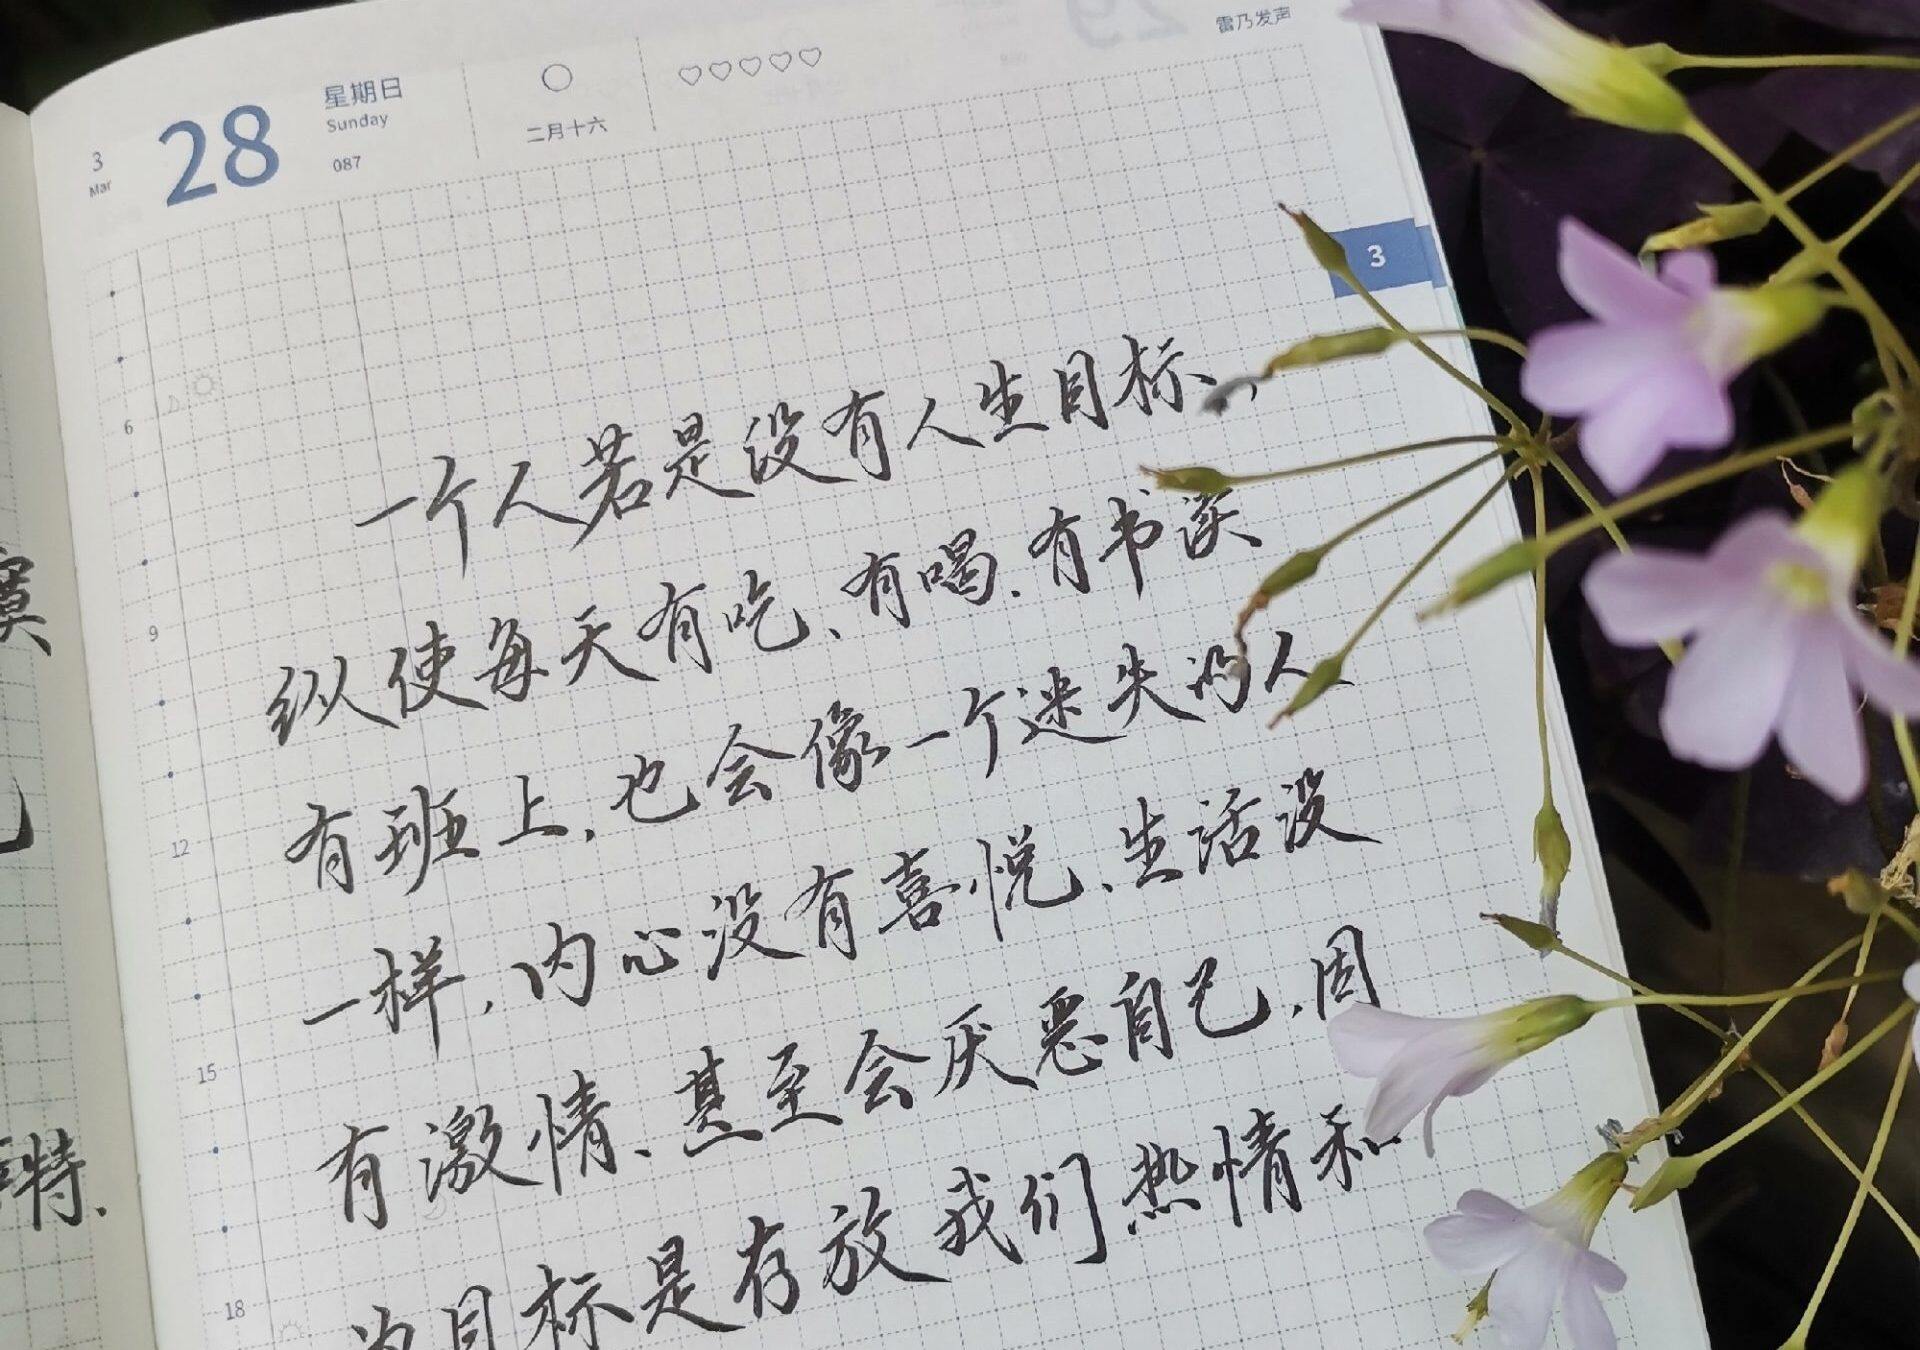 雷乃发声
3
Mar
28
星期日
Sunday
087
二月十六
3
一个人若是没有人生目标，
纵使每天有吃、有喝、有书读
有班上，也会像一个迷失的人
一样，内心没有喜悦、生活没
有激情、甚至会厌恶自己，因
为目标是存放我们热情和
6
9
12
15
18
特.